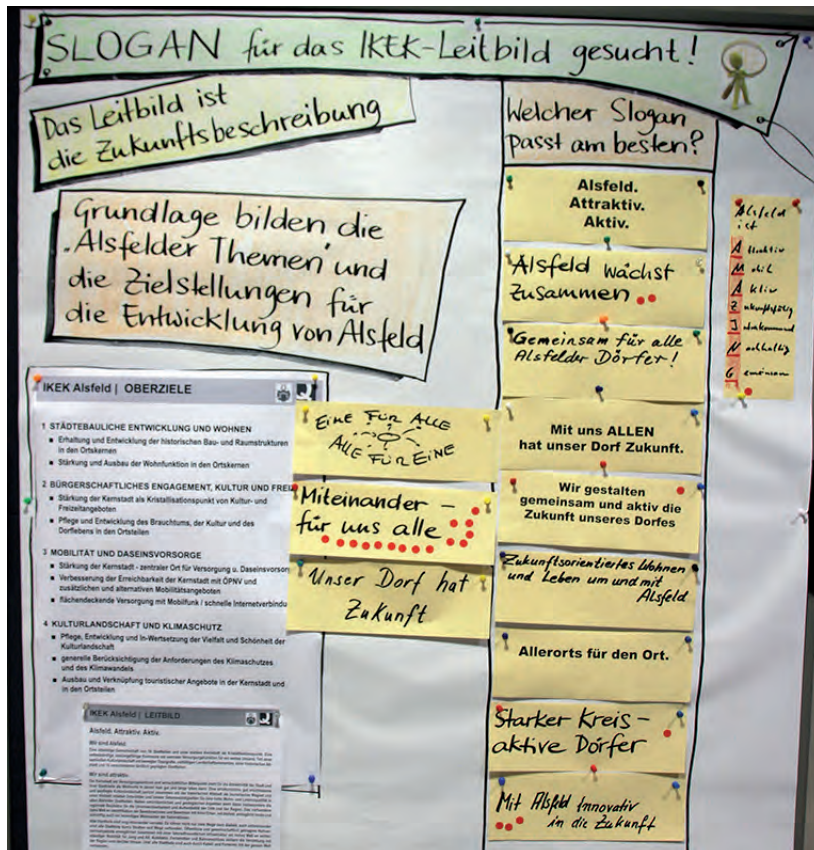 SLOGAN für das IKEK-Leitbild gesucht!
Das Leitbild ist
die Zukunftsbeschreibung
Grundlage bilden die
"Alsfelder Themen" und
die Zielstellungen für
die Entwicklung von Alsfeld
IKEK Alsfeld | OBERZIELE
1 STÄDTEBAULICHE ENTWICKLUNG UND WOHNEN
Erhaltung und Entwicklung der historischen Bau- und Raumstrukturen
in den Ortskernen
Stärkung und Ausbau der Wohnfunktion in den Ortskernen
2 BÜRGERSCHAFTLICHES ENGAGEMENT, KULTUR UND FREI
Stärkung der Kernstadt als Kristallisationspunkt von Kultur- und
Freizeitangeboten
Pflege und Entwicklung des Brauchtums, der Kultur und des
Dorflebens in den Ortsteilen
3 MOBILITÄT UND DASEINSVORSORGE
Stärkung der Kernstadt - zentraler Ort für Versorgung u. Daseinsvorsorg
Verbesserung der Erreichbarkeit der Kernstadt mit ÖPNV und
zusätzlichen und alternativen Mobilitätsangeboten
flächendeckende Versorgung mit Mobilfunk / schnelle Internetverbindu
4 KULTURLANDSCHAFT UND KLIMASCHUTZ
Pflege, Entwicklung und In-Wertsetzung der Vielfalt und Schönheit der
Kulturlandschaft
generelle Berücksichtigung der Anforderungen des Klimaschutzes
und des Klimawandels
Ausbau und Verknüpfung touristischer Angebote in der Kernstadt und
in den Ortsteilen
IKEK Alsfeld | LEITBILD
Alsfeld. Attraktiv. Aktiv.
Wir sind Alsfeld.
Wir sind attraktiv.
EINE FÜR ALLE
ALLE FÜR EINE
Miteinander –
für uns alle
Unser Dorf hat
Zukunft
Welcher Slogan
passt am besten?
Alsfeld.
Attraktiv.
Aktiv.
Alsfeld wächst
zusammen
Gemeinsam für alle
Alsfelder Dörfer!
Mit uns ALLEN
hat unser Dorf Zukunft.
Wir gestalten
gemeinsam und aktiv die
Zukunft unseres Dorfes
Zukunftsorientiertes Wohnen
und Leben um und mit
Alsfeld
Allerorts für den Ort.
Starker Kreis –
aktive Dörfer
Mit Alsfeld Innovativ
in die Zukunft
Alsfeld
ist
Attraktiv
Mobil
Aktiv
Zukunftsfähig
Nachhaltig
Gemeinsam